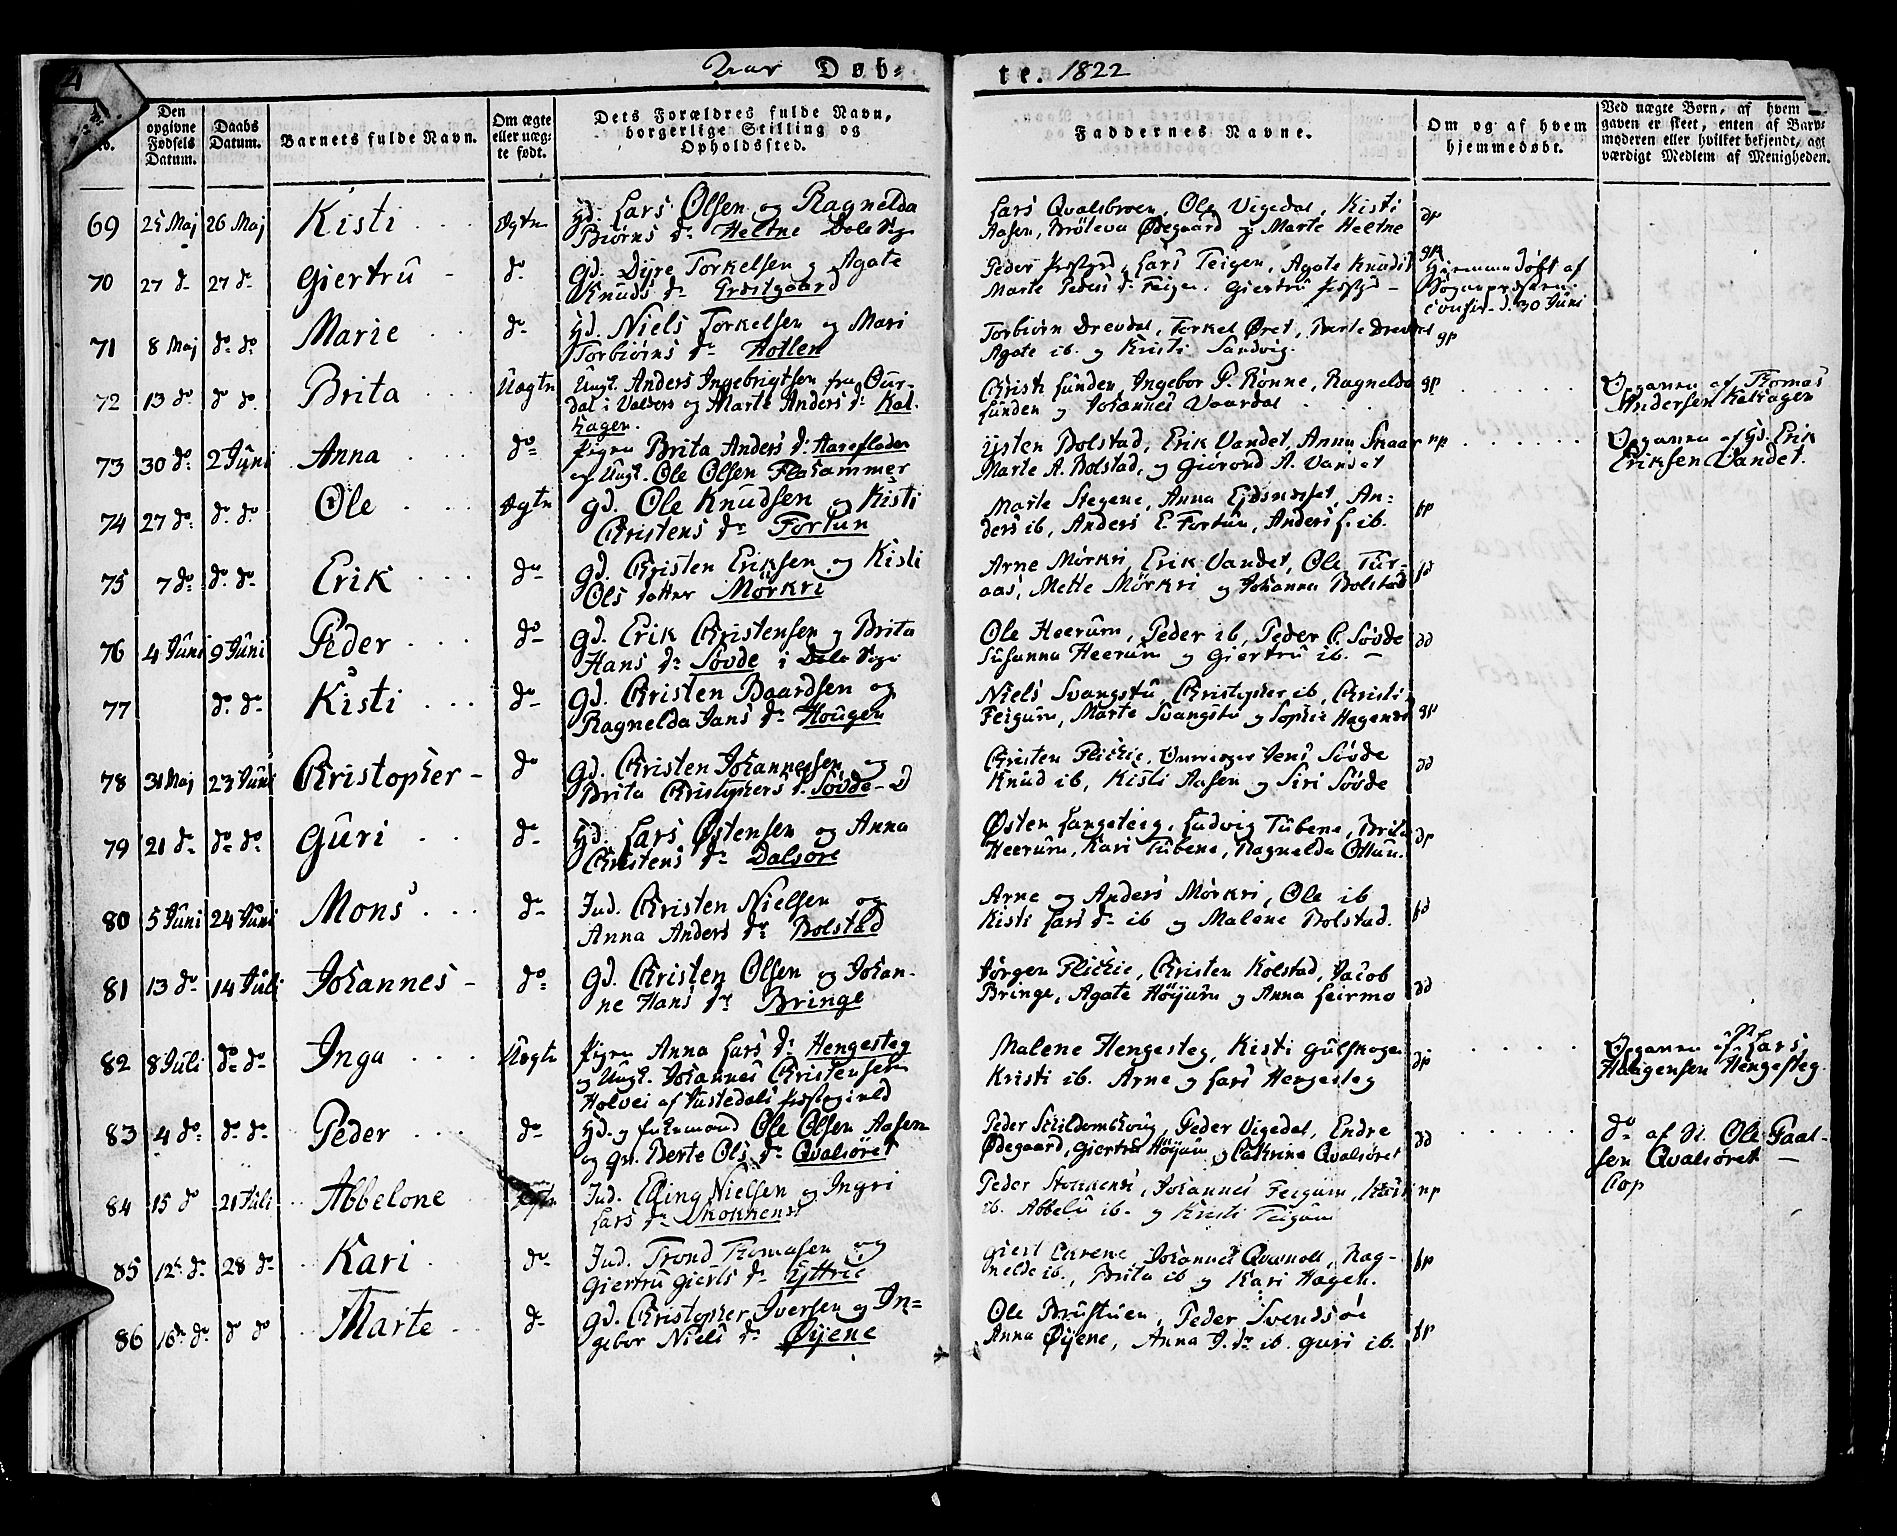 Døb-
te. 1822
Den opgivne Fødsels Datum.
Daabs Datum.
Barnets fulde Navn.
Om ægte eller uægte født.
Dets Forældres fulde Navn, borgerlige Stilling og Opholdssted.
Faddernes Navne.
Om og af hvem hjemmedøbt.
Ved uægte Børn, af hvem
gaven er skeet, enten af Barn-
moderen eller hvilket bekjendt, agt
værdigt Medlem af Menigheden.
69 25 Maj 26 Maj Kisti Ægte
Lars Olsen og Ragnelda
Biørns dr Heltne Dale Sogn
Lars Qvalsbroen, Ole Vigedal, Kisti
Aasen, Brøteva Ødegaard og Marte Heltne
dp
70 27 do 27 do Giertru do
Gd. Dyre Torkelsen og Agate
Knuds dr
Peder Lars Teigen, Agate Knuds
Marte Peders dr Teigen, Giertru
gp
Hiemmedøbt af
30 Juni
71 8 Maj do do Marie do
Hd. Niels Torkelsen og Mari
Torbiørns dr
Torbiørn Drevdal, Torkel Øret, Marte Drevdal
Agate ib. og Kristi Sandvig.
gp
72 13 do do do Brita Uægte
Ungk. Anders Ingebrigtsen fra Our-
dal i Valders og Marte Anders dr Kal-
hagen.
Christi Lunden, Ingebor P. Rønne, Ragnelda
Lunden og Johannes Vaardal
gp
Opgaven af Thomas
Andersen Kalhagen
73 30 do 2 Juni Anna do
Pigen Brita Anders dr
af Ungk. Ole Olsen Flahammer
Østen Bolstad, Erik Vandet, Anna Skaar
Marte A. Bolstad, og A. Vandet
np
Opgaven af Gd. Erik
Eriksen Vandet.
74 27 do do do Ole Ægte
Gd. Ole Knudsen og Kisti
Christens dr Fortun
Marte Stegene, Anna An-
ders ib, Anders E. Fortun, Anders L. ib.
fp
75 7 do do do Erik do
Gd. Christen Eriksen og Kisti
Ols datter Mørkri
Arne Mørkri, Erik Vandet, Ole Tur-
aas, Mette Mørkri og Johanna Bolstad
fd
76 4 Juni 9 Juni Peder do
Gd. Erik Christensen og Brita
Hans dr Søvde i Dale Sogn
Ole Heerum, Peder ib, Peder C. Søvde
Susanna Heerum og Giertru ib.
dd
77 do do Kisti do
Gd. Christen Baardsen og
Ragnelda Jans dr Hougen
Niels Svangstu, Christopher ib, Christi
Feigum, Marte Svangstu og Sophie Hagen
gp
78 31 Maj 23 Juni Christopher do
Gd. Christen Johannessen og
Brita Christophers dr Søvde - D
Christen Flichie, Jens Søvde
Knud ib, Kisti Aasen og Siri Søvde
dd
79 21 do do do Guri do
Hd. Lars Østensen og Anna
Christens dr Dalsøre
Østen Langeteig, Ludvig Tubene, Brita
Heerum, Kari Tubene, Ragnelda Ottum.
dp
80 5 Juni 24 Juni Mons do
Ind. Christen Nielsen og
Anna Anders dr Bolstad
Arne og Anders Mørkri, Ole ib
Kisti Lars dr ib og Malene Bolstad.
fd
81 13 do 14 Juli Johannes do
Gd. Christen Olsen og Johan-
ne Hans dr Bringe
Jørgen Flichie, Christen Kolstad, Jacob
Bringe, Agate Høyum og Anna Leirmo
dd
82 8 Juli do do Inga Uægte
Pigen Anna Lars dr Hengesteg
og Ungk. Johannes Christensen
Holvei af Justedals Præstegield
Malene Hengesteg, Kisti Gulskoge
Kristi ib. Arne og Lars Hengesteg
dp
Opgaven af Lars
Haagensen Hengesteg
83 4 do do do Peder do
Hd. og Enkemand Ole Olsen Aasen
og Berte Ols dr Qvalsøret
Peder Peder Vigedal, Endre
Ødegaard, Giertru Høyum og Cathrine Qvalsøret
dd
do af Ole Paal-
sen Qvalsøret
84 15 do 21 Juli Abbelone Ægte
Ind. Elling Nielsen og Ingri
Lars dr
Peder Johannes Feigum,
ib. Abbelu ib. og Kristi Feigum
np
85 12te do 28 do Kari do
Ind. Trond Thomasen og
Giertru Gierts dr Yttrie
Giert Johannes Rag-
nelde ib., Brita ib og Kari Hagen.
fp
86 16de do do do Marte do
Gd. Christopher Iversen og In-
gebor Niels dr Øyene
Ole Peder Svendsøe
Anna Øyene, Anna I. dr ib. Guri ib.
fp